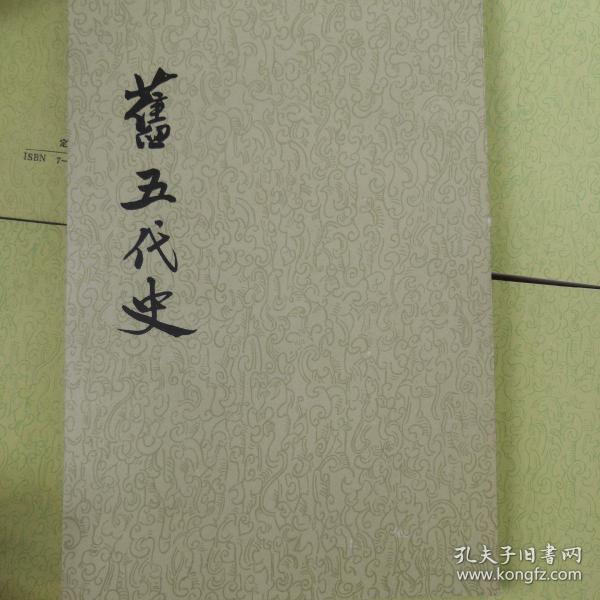 舊五代史
定
ISBN 7-
孔夫子旧書网
www.kongfz.com